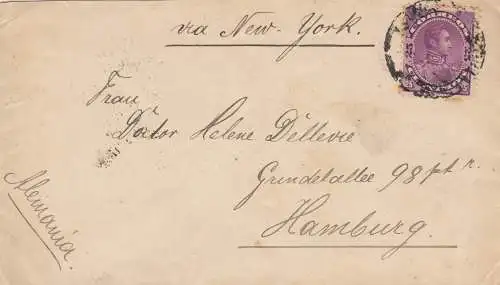 via New-York.
25 25
Frau
Doctor Helene Dellevie
Grindelallee 98 ptr.
Hamburg.
Alemania.